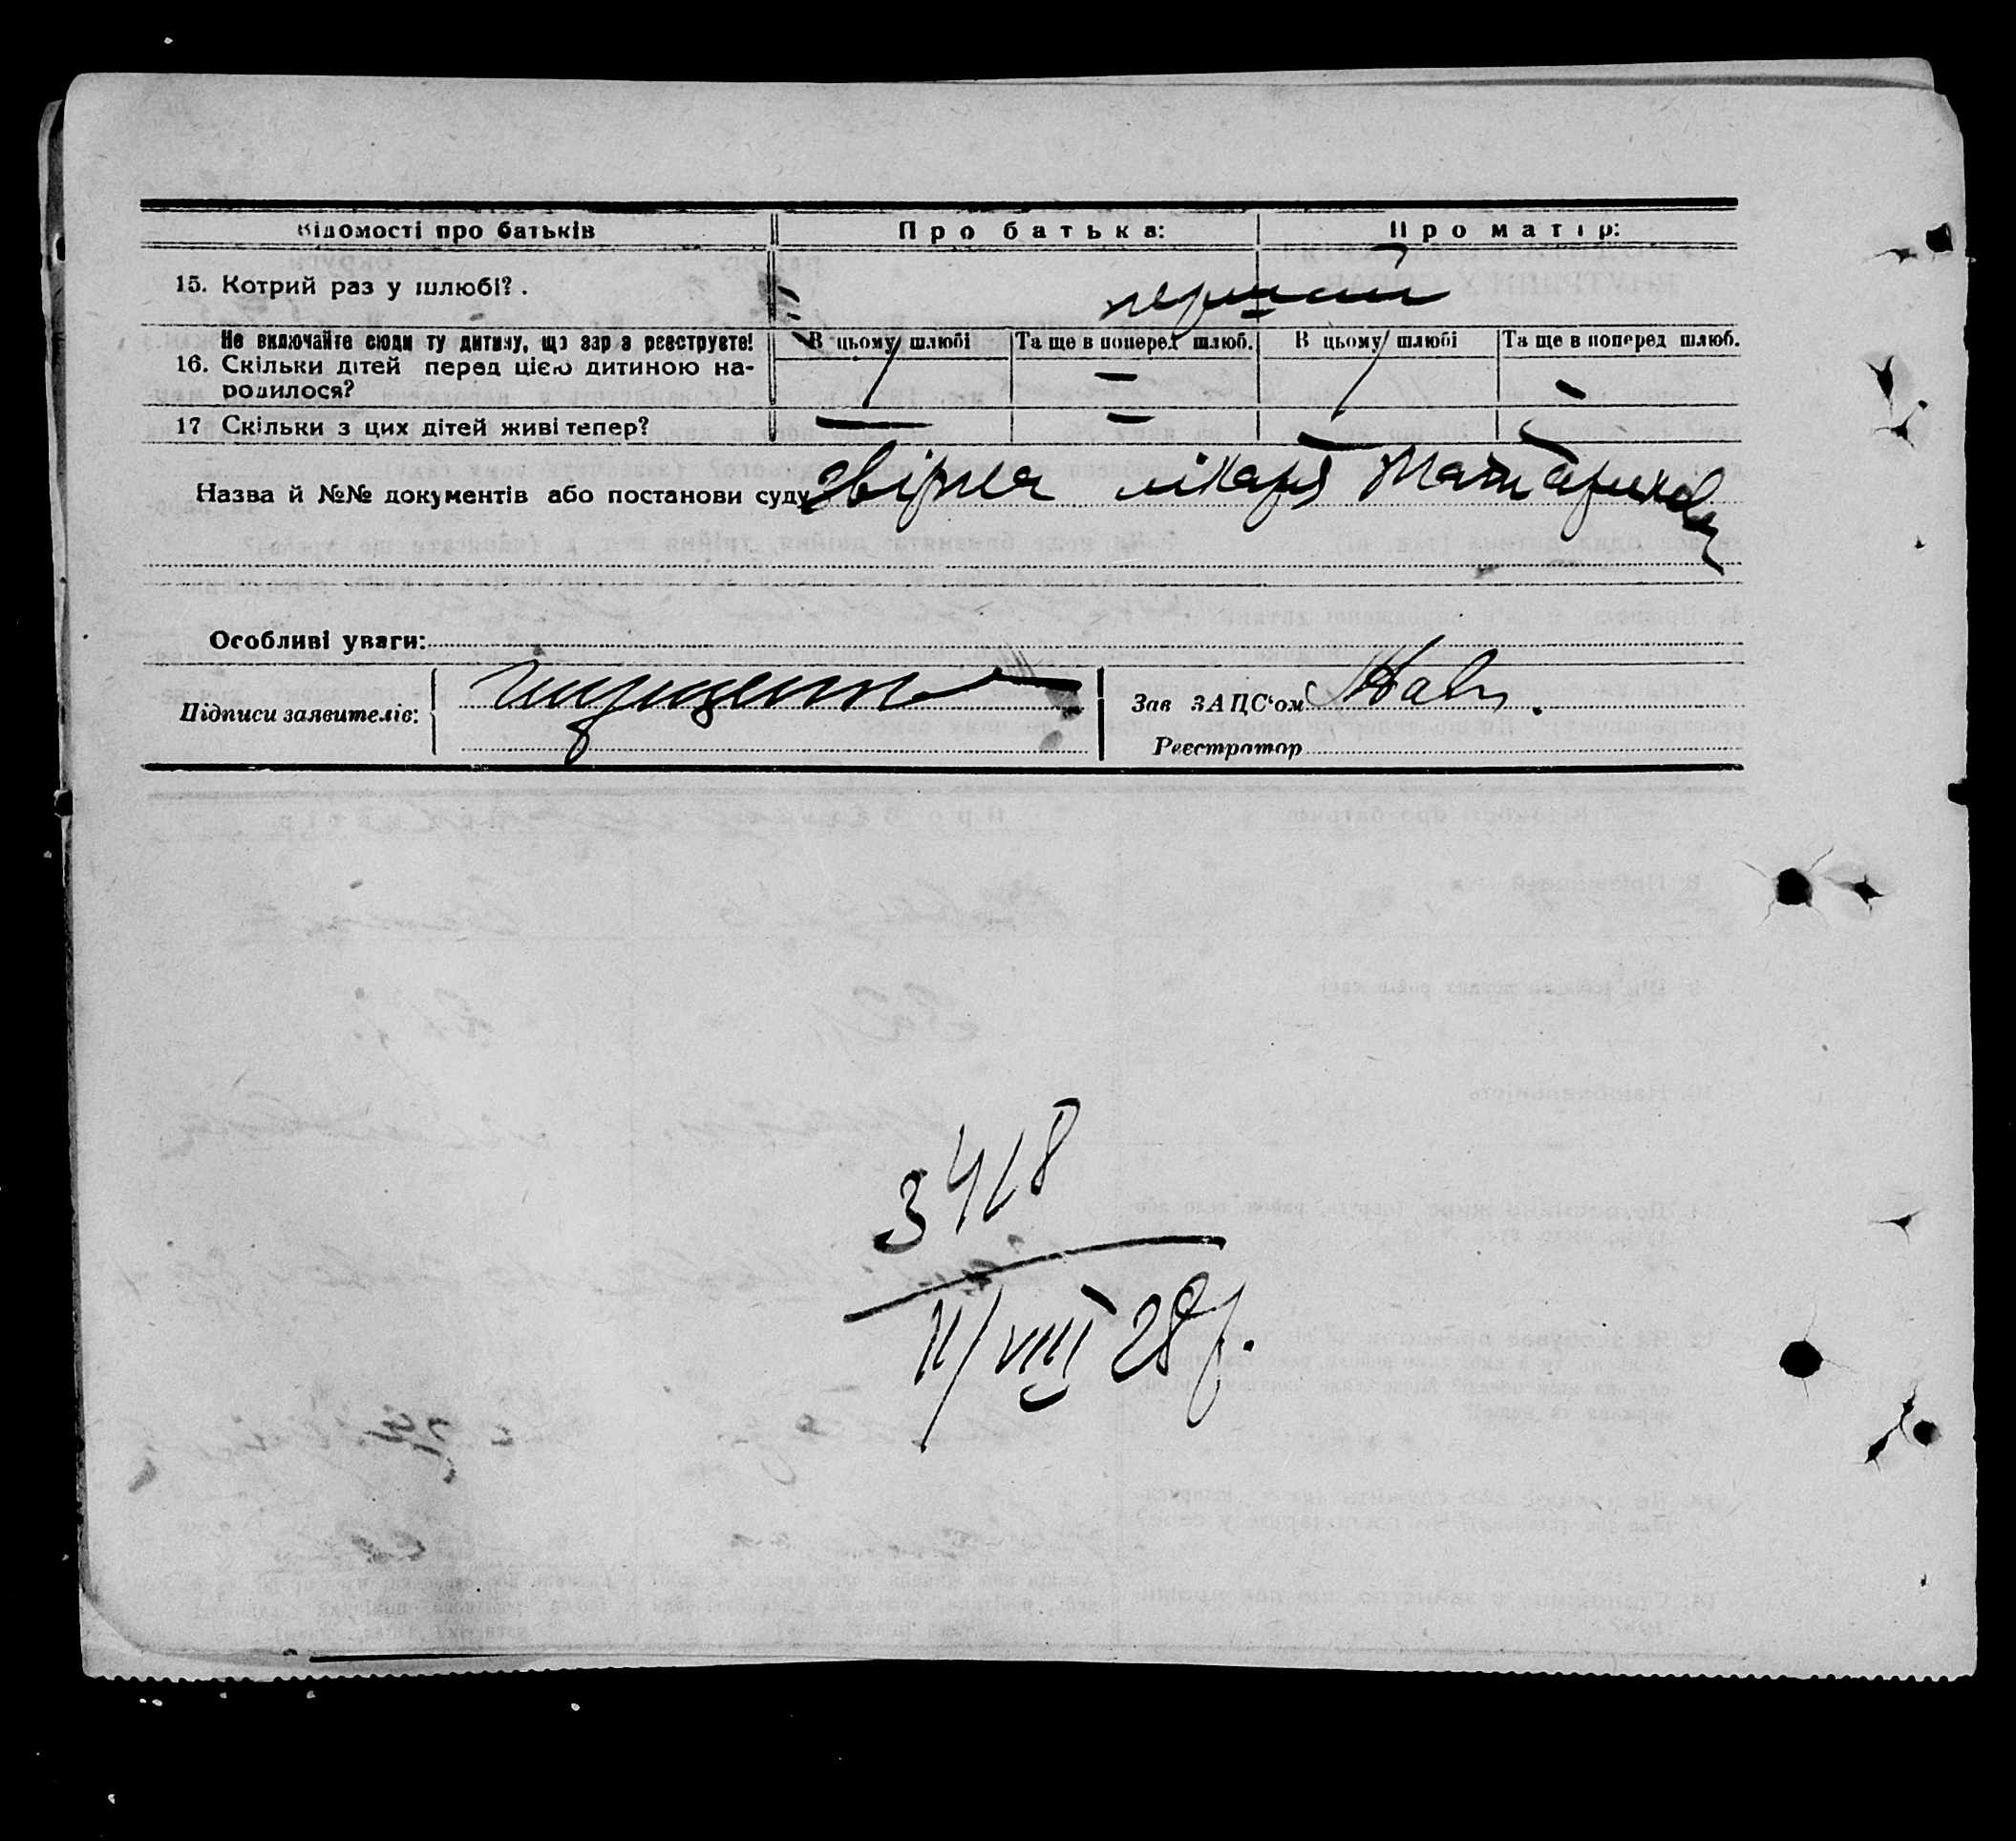 Відомості про батьків Про батька: Про матір:
15. Котрий раз у шлюбі? перший
Не включайте сюди ту дитину, що зараз реєструєте! В цьому шлюбі Та ще в поперед шлюб. В цьому шлюбі Та ще в поперед шлюб.
16. Скільки дітей перед цією дитиною на- 1 — 1 —
родилося?
17 Скільки з цих дітей живі тепер? — — — —
Назва й №№ документів або постанови суду лікаря
Особливі уваги:
Підписи заявителів: Зав ЗАЦС'ом
Реєстратор
3418
11/VIII 28 р.